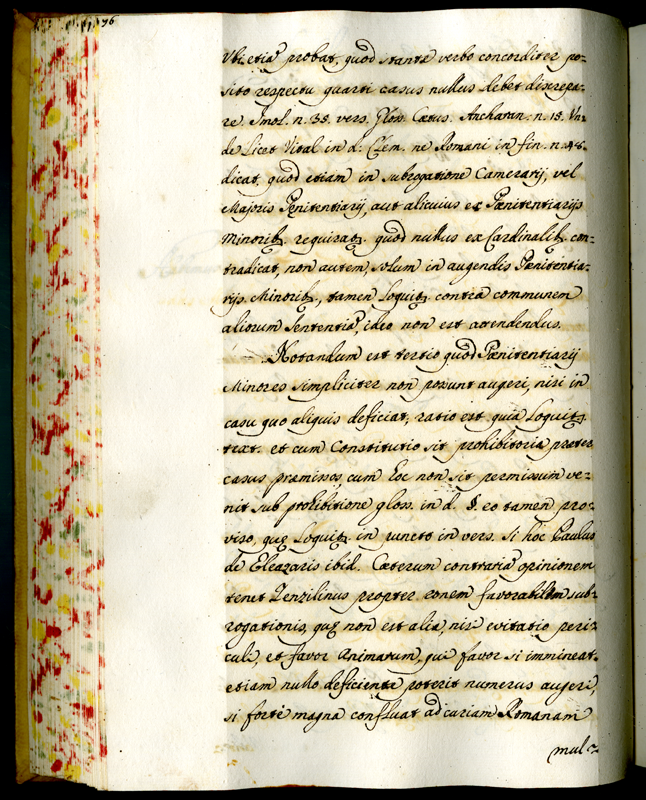 Vbi etiã probat, quod stante verbo concorditer po-
sito respectu quarti casus nullus debet discrepa-
re Imol. n. 35. vers. Gloss. Cætus. Ancharan. n. 15. Vn-
de licet Vital in d. Clem. ne Romani in fin. n. 48.
dicat, quod etiam in subrogatione Camerarij, vel
Majoris Pęnitentiarij, aut alicuius ex Pœnitentiarijs
Minoribꝫ requiratꝫ quod nullus ex Cardinalibꝫ con-
tradicat, non autem solum in augendis Pœnitentia-
rijs Minoribꝫ, tamen loquitꝫ contra communem
aliorum sententiã, ideo non est attendendus.
Notandum est tertio quod Pœnitentiarij
Minores simpliciter non possunt augeri, nisi in
casu quo aliquis deficiat, ratio est quia loquitꝫ
text. et cum Constitutio sit prohibitoria preter
casus præmissos, cum hoc non sit permissum ve-
nit sub prohibitione gloss. in d. §. eo tamen pro-
viso, quę loquitꝫ in puncto in vers. si hoc Paulus
de Eleazaris ibid. Cæterum contrariã opinionem
tenet Zenzilinus propter rõnem favorabilem sub-
rogationis, quę non est alia, nisi evitatio peri-
culi, et favor Animarum, qui favor si immineat
etiam nullo deficiente poterit numerus augeri,
si forte magna confluat ad curiam Romanam
mul-